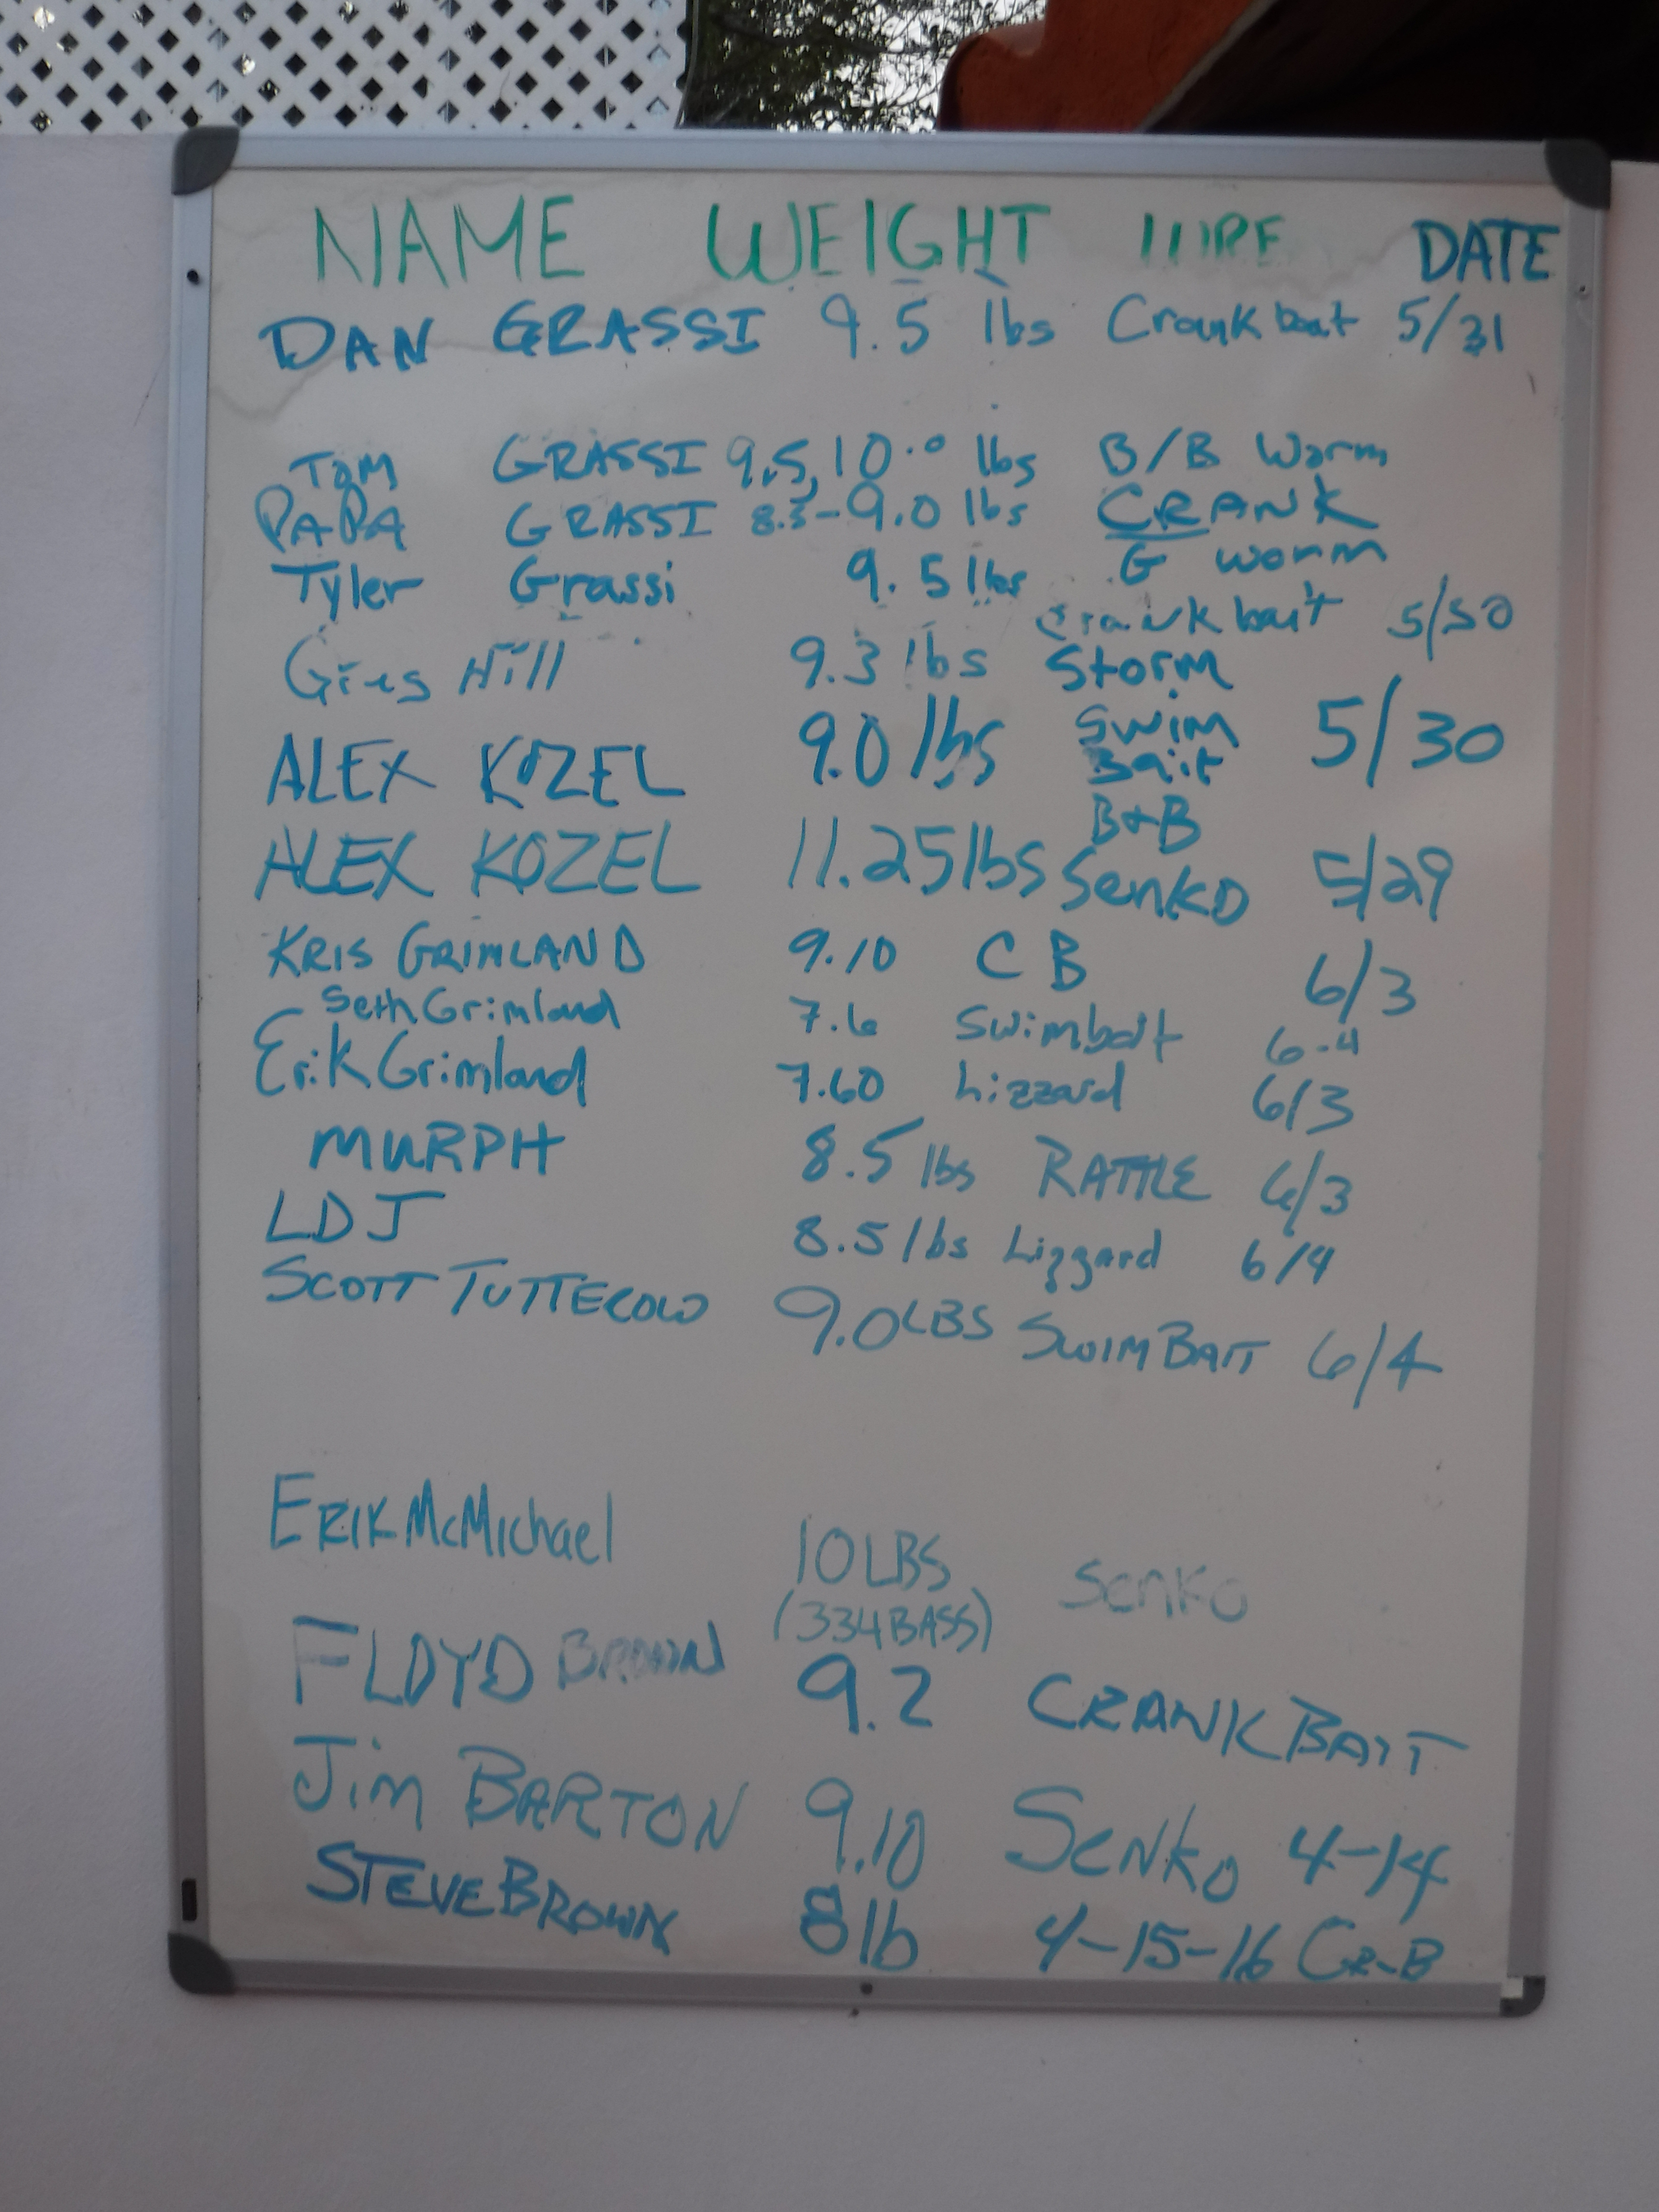 NAME WEIGHT LURE DATE
DAN GRASSI 9.5 lbs Crankbait 5/31
TOM GRASSI 9.5, 10.0 lbs B/B Worm
PAPA GRASSI 8.3-9.0 lbs CRANK
Tyler Grassi 9.5 lbs G worm
Greg Hill 9.3 lbs Crankbait Storm 5/30
ALEX KOZEL 9.0 lbs Swim Bait 5/30
ALEX KOZEL 11.25 lbs B+B Senko 5/29
KRIS GRIMLAND 9.10 CB 6/3
Seth Grimland 7.6 Swimbait 6-4
Erik Grimland 7.60 Lizzard 6/3
MURPH 8.5 lbs RATTLE 6/3
LDJ 8.5 lbs Lizzard 6/4
SCOTT 9.0 LBS SWIMBAIT 6/4
ERIK McMichael 10 LBS Senko
(334 BASS)
FLOYD BROWN 9.2 CRANKBAIT
Jim BARTON 9.10 SENKO 4-14
STEVE BROWN 8 lb 4-15-16 CR-B